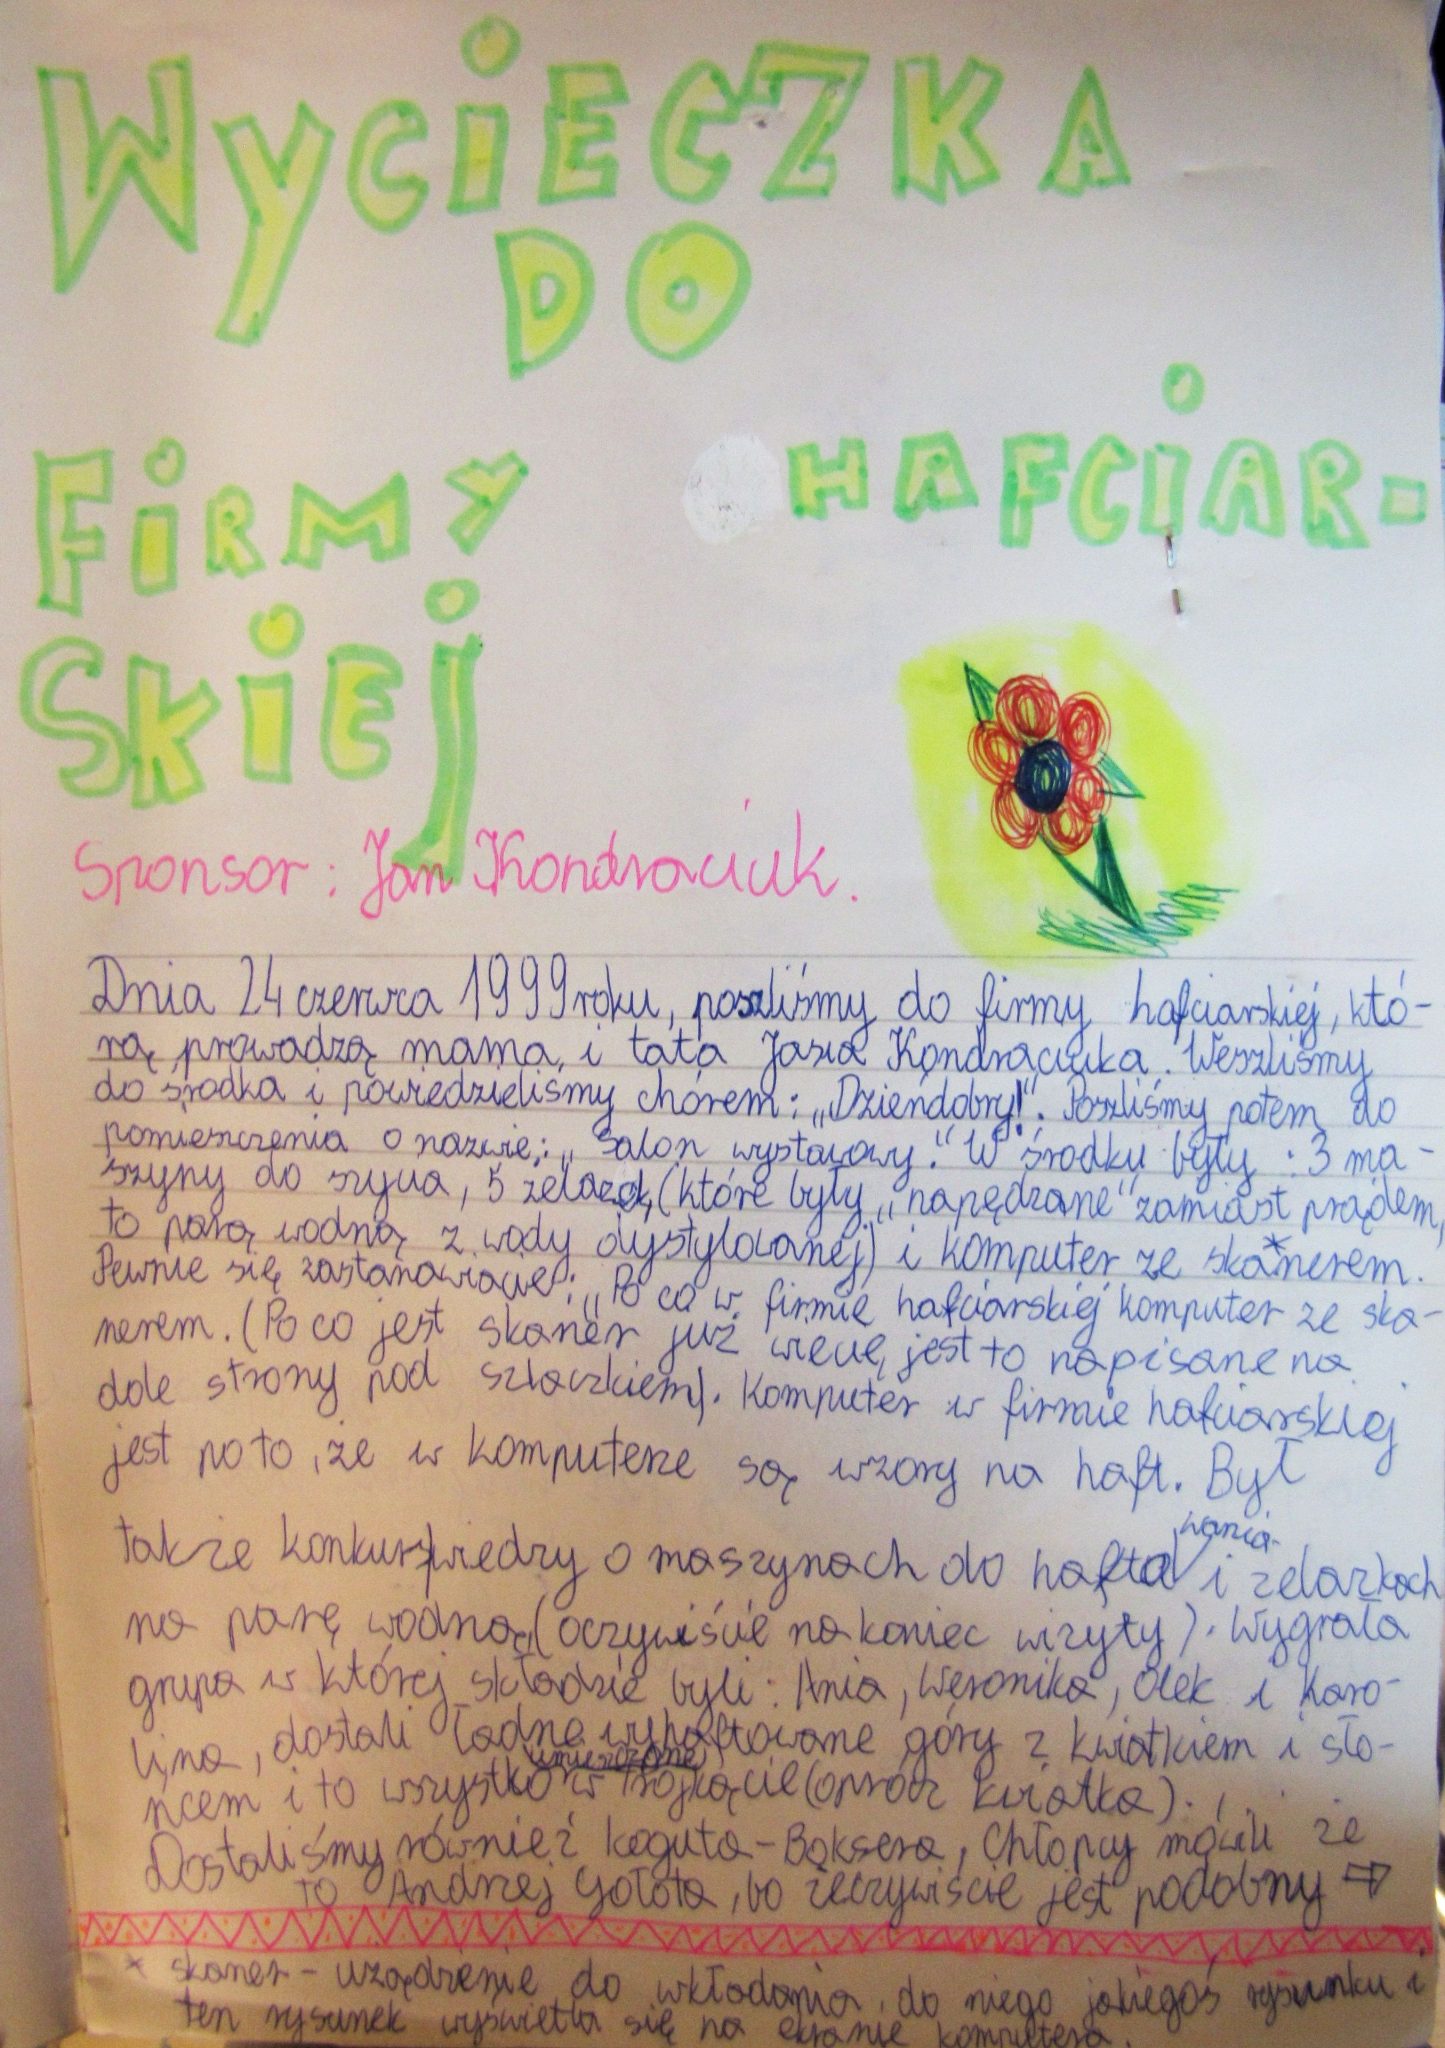 WYCiECZKA
DO
FiRMY HAFCiAR-
SKiEj
Sponsor: Jan Kondraciuk.
Dnia 24 czerwca 1999 roku, poszliśmy do firmy hafciarskiej, któ-
rą prowadzą mama i tata Jasia Kondraciuka. Weszliśmy
do środka i powiedzieliśmy chórem: „Dzieńdobry!". Poszliśmy potem do
pomieszczenia o nazwie: „Salon wystawowy." W środku były: 3 ma-
szyny do szycia, 5 żelazek, (które były „napędzane" zamiast prądem,
to parą wodną z wody dystylowanej) i komputer ze skanerem.*
Pewnie się zastanawiacie: „Po co w firmie hafciarskiej komputer ze ska-
nerem. (Po co jest skaner już wiecie, jest to napisane na
dole strony pod szlaczkiem). Komputer w firmie hafciarskiej
jest po to, że w komputerze są wzory na haft. Był
także konkurs wiedzy o maszynach do haftowania i żelazkach
na parę wodną, (oczywiście na koniec wizyty). Wygrała
grupa w której składzie byli: Ania, Weronika, Olek i Karo-
lina, dostali ładne wyhaftowane góry z kwiatkiem i sło-
ńcem i to wszystko umieszczone w trójkącie (oprócz kwiatka).
Dostaliśmy również koguta-Boksera, Chłopcy mówili że
to Andrzej Gołota, bo rzeczywiście jest podobny ⇨
* skaner - urządzenie do wkładania do niego jakiegoś rysunku i
ten rysunek wyświetla się na ekranie komputera.